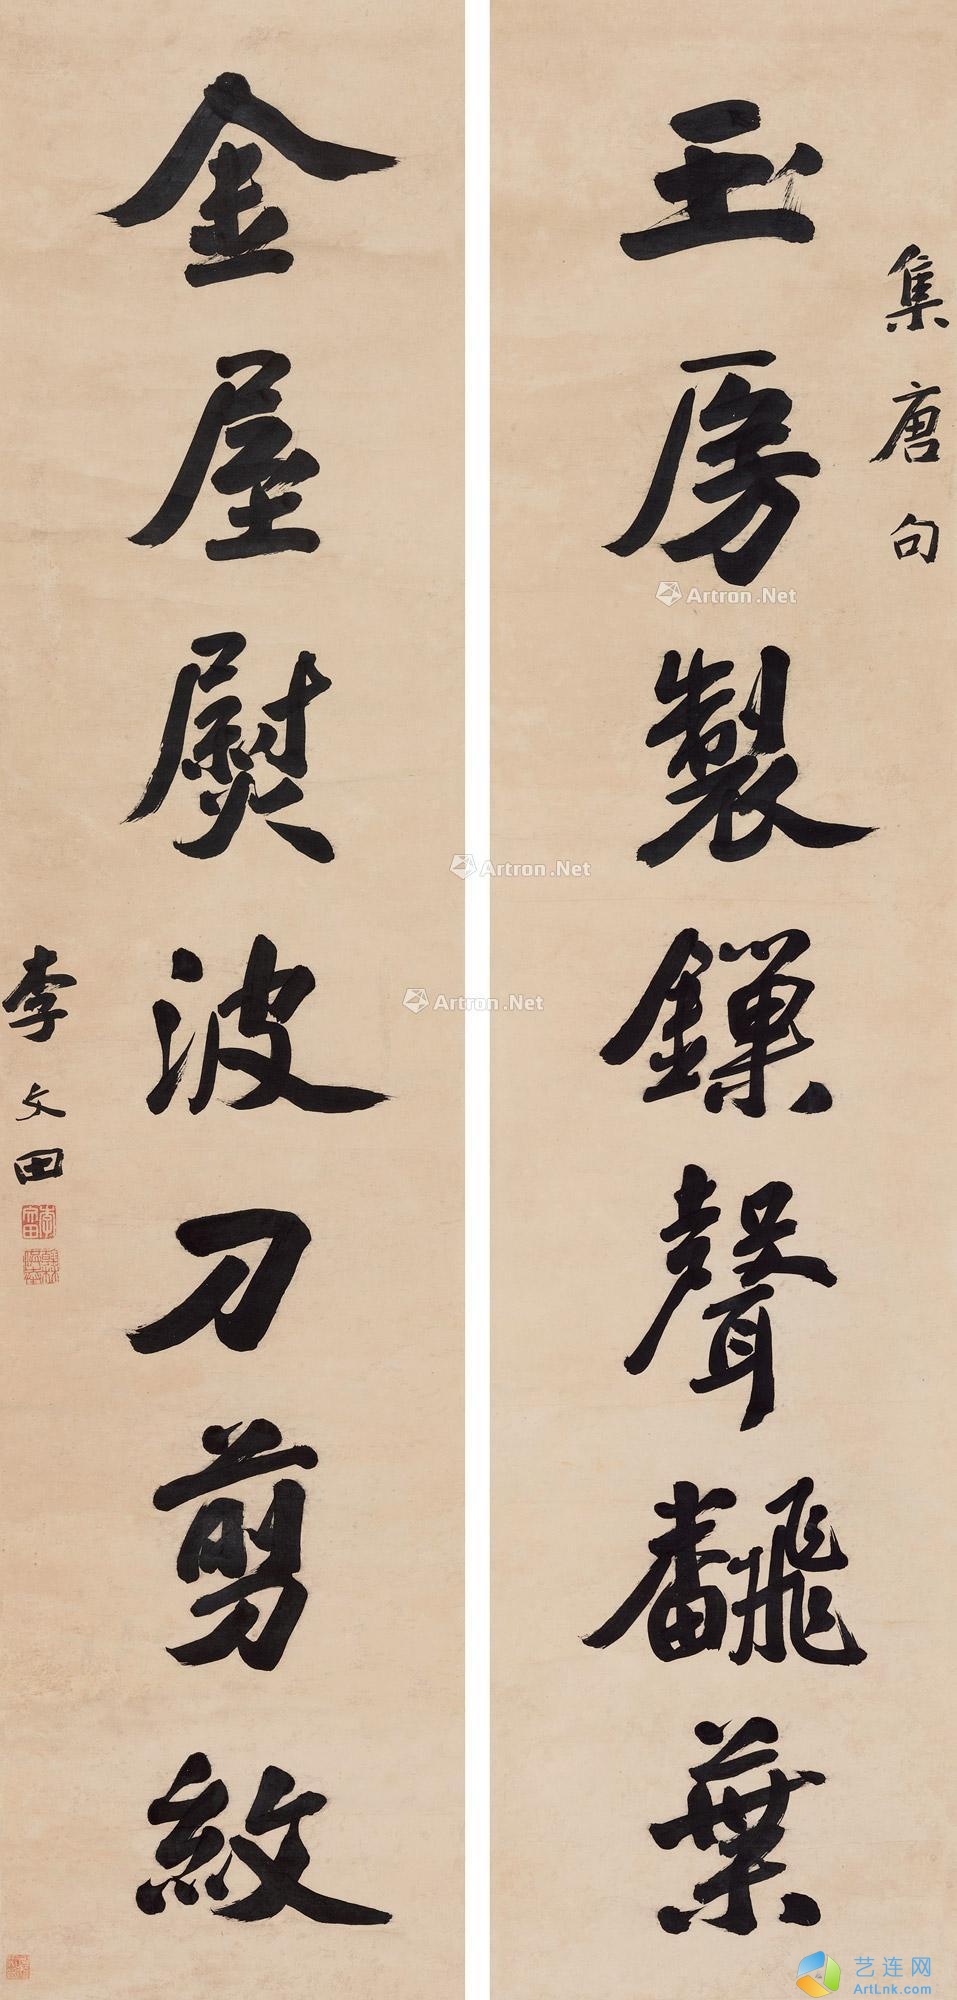 集唐句
玉房製鏁聲飜葉
金屋熨波刀剪紋
李文田
Artron.Net
Artron.Net
Artron.Net
艺连网
ArtLnk.Com